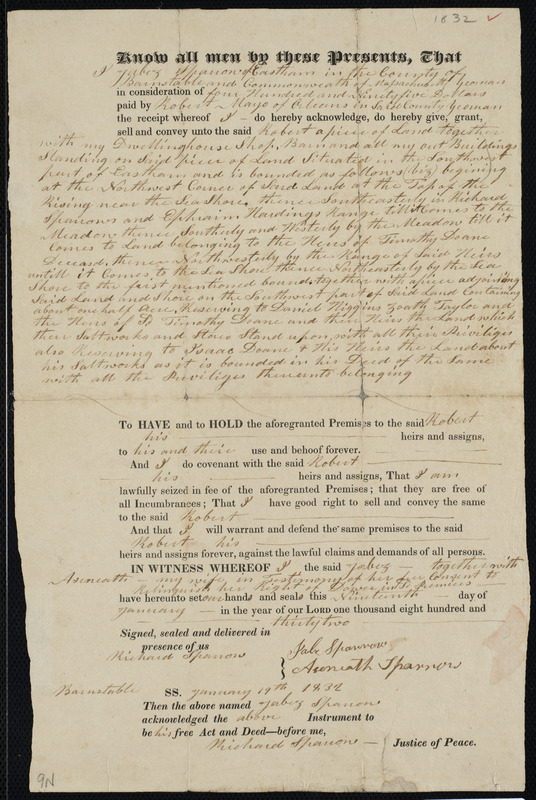 1832 ✓
Know all men by these Presents, That
I Jabez Sparrow of Eastham in the County of
Barnstable and Commonwealth of Massachusetts Yeoman
in consideration of four Hundred and Ninety five Dollars
paid by Robert Mayo of Orleans in Said County Yeoman
the receipt whereof I – do hereby acknowledge, do hereby give, grant,
sell and convey unto the said Robert a piece of Land together
with my Dwellinghouse Shop, Barn and all my out Buildings
Standing on Said piece of Land Situated in the Southwest
part of Eastham and is bounded as follows (viz) begining
at the Northwest Corner of Said Land at the Top of the
Rising near the Sea Shore, thence Southeasterly in Richard
Sparrows and Ephraim Hardings Range till it Comes to the
Meadow thence Southerly and Westerly by the Meadow till it
Comes to Land belonging to the Heirs of Timothy Doane
Deceasd, thence Northwesterly by the Range of Said Heirs
untill it Comes to the Sea Shore thence Northeasterly by the Sea
Shore to the first mentioned bound, together with a piece adjoining
Said Land and Shore on the Southwest part of Said Land Containing
about one half Acre, Reserving to Daniel Higgins Zoath Taylor and
the Heirs of Sd Timothy Doane and their Heirs the Land which
their Saltworks and Stores Stand upon, with all their Priviliges
also Reserving to Isaac Doane & His Heirs the Land about
his Saltworks as it is bounded in his Deed of the Same
with all the Priviliges thereunto belonging
To HAVE and to HOLD the aforegranted Premises to the said Robert
his heirs and assigns,
to his and their use and behoof forever.
And I do covenant with the said Robert
his heirs and assigns, That I am
lawfully seized in fee of the aforegranted Premises; that they are free of
all Incumbrances; That I have good right to sell and convey the same
to the said Robert
And that I will warrant and defend the same premises to the said
Robert his
heirs and assigns forever, against the lawful claims and demands of all persons.
IN WITNESS WHEREOF I the said Jabez – together with
Aseneath – my wife in Testimony of her free Consent to
Relinquish her Right of Dower in Sd Premises
have hereunto set our hands and seals this Nineteenth day of
January – in the year of our LORD one thousand eight hundred and
thirty two
Signed, sealed and delivered in
presence of us
Richard Sparrow
Jabez Sparrow
Aseneath Sparrow
Barnstable SS. January 19th 1832
Then the above named Jabez Sparrow
acknowledged the above Instrument to
be his free Act and Deed—before me,
Richard Sparrow – Justice of Peace.
9N